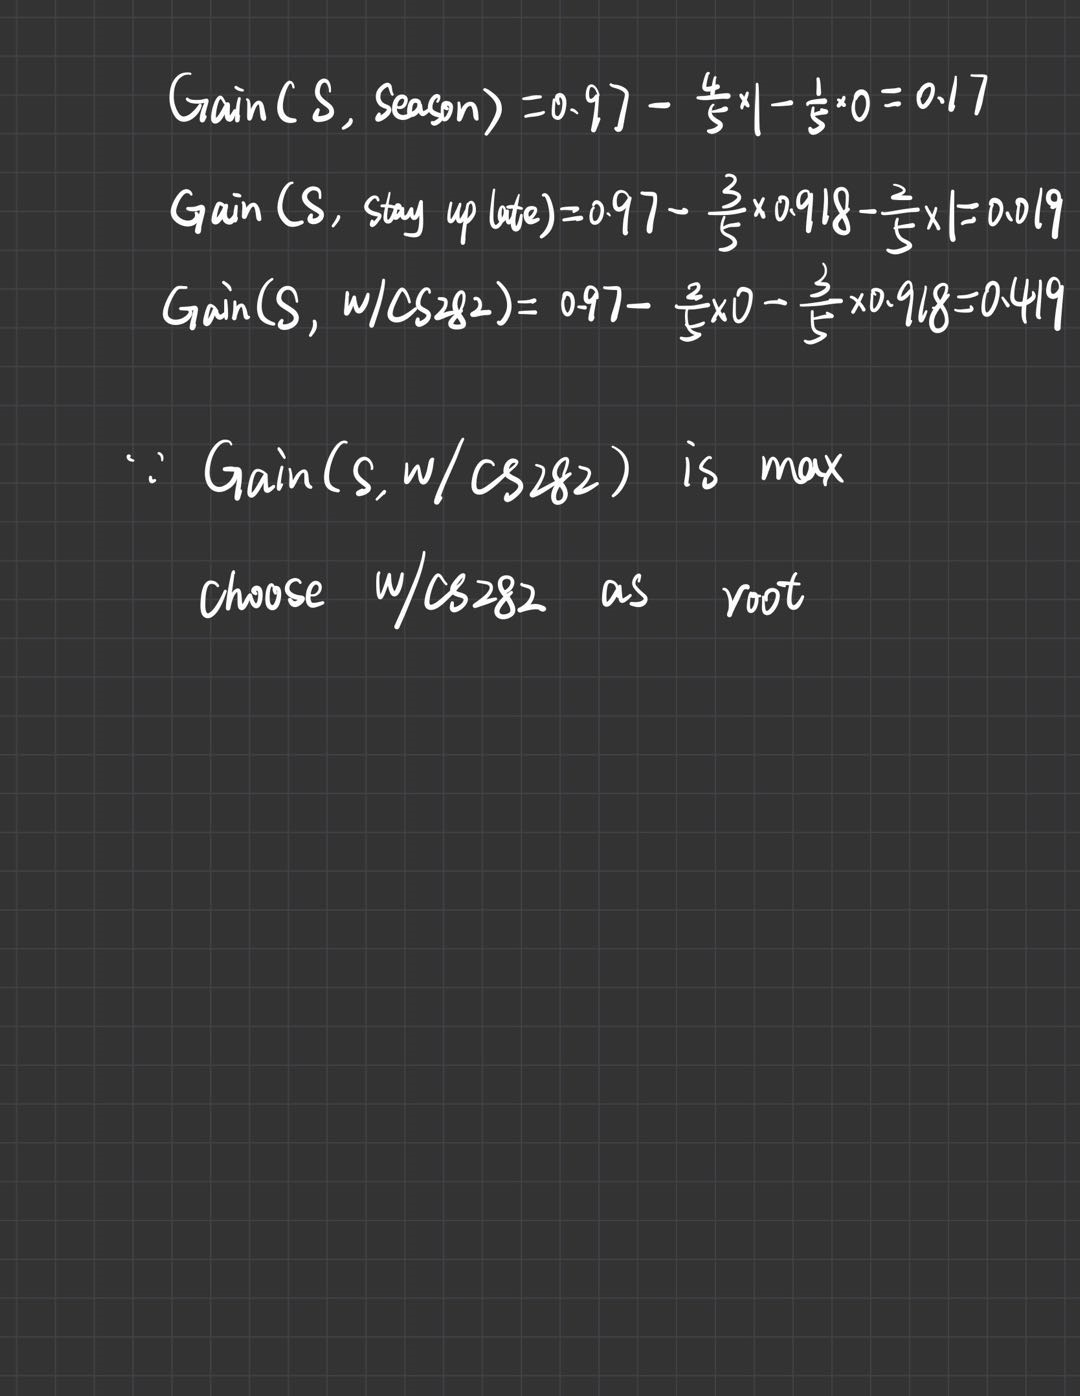 Gain(S, Season) = 0.97 - 4/5 × 1 - 1/5 × 0 = 0.17
Gain(S, stay up late) = 0.97 - 3/5 × 0.918 - 2/5 × 1 = 0.019
Gain(S, w/CS282) = 0.97 - 2/5 × 0 - 3/5 × 0.918 = 0.419
∵ Gain(S, w/CS282) is max
choose w/CS282 as root